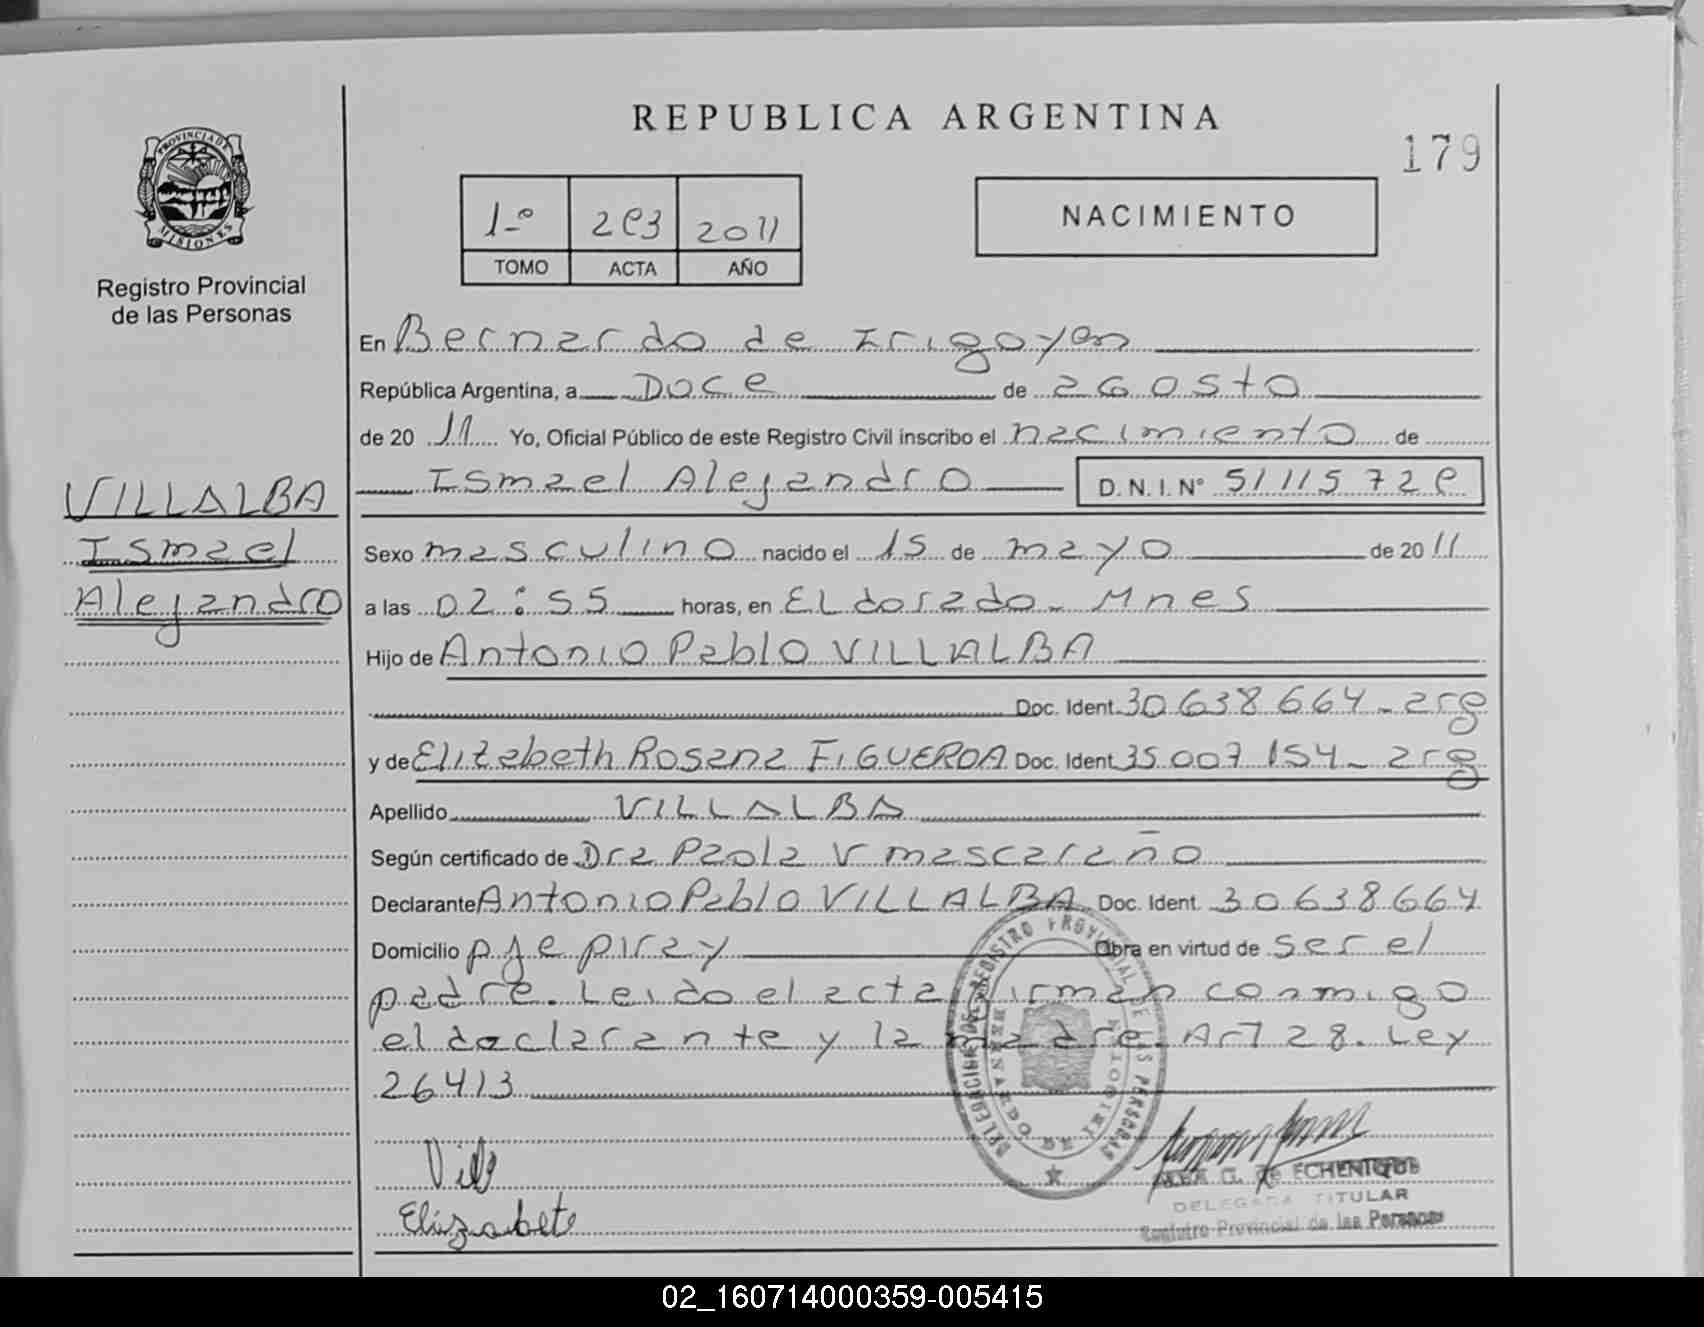 REPUBLICA ARGENTINA
179
PROVINCIA DE MISIONES
Registro Provincial
de las Personas
1º 203 2011
TOMO ACTA AÑO
NACIMIENTO
En Bernardo de Irigoyen
República Argentina, a Doce de agosto
de 20 11 Yo, Oficial Público de este Registro Civil inscribo el nacimiento de
Ismael Alejandro D.N.I.Nº 51 115 720
VILLALBA
Ismael
Alejandro
Sexo masculino nacido el 15 de mayo de 20 11
a las 02:55 horas, en Eldorado - Mnes
Hijo de Antonio Pablo VILLALBA
Doc. Ident. 30 638 664 - arg
y de Elizabeth Rosana FIGUEROA Doc. Ident. 35 007 154 - arg
Apellido VILLALBA
Según certificado de Dra Paola V mascaraño
Declarante Antonio Pablo VILLALBA Doc. Ident. 30 638 664
Domicilio pje piray Obra en virtud de ser el
padre. Leido el acta firman conmigo
el declarante y la madre. Art 28. Ley
26413
DELEGACION DEL REGISTRO PROVINCIAL DE LAS PERSONAS
BERNARDO DE IRIGOYEN
Elizabete
DE ECHENIQUE
DELEGADA TITULAR
Registro Provincial de las Personas
02_160714000359-005415